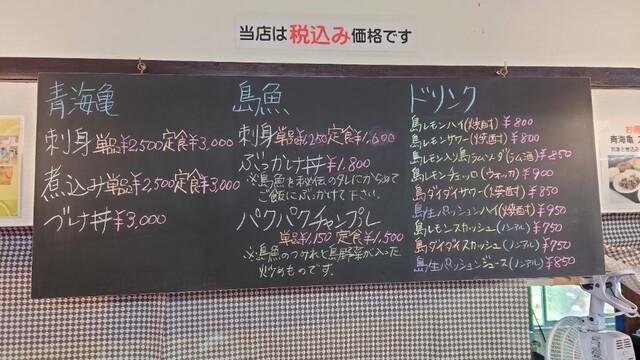 当店は税込み価格です
青海亀
刺身単品¥2,500定食¥3,000
煮込み単品¥2,500定食¥3,000
づけ丼¥3,000
島魚
刺身単品¥1,250定食¥1,600
ぶっかけ丼¥1,800
※島魚を秘伝のタレにからめて
ご飯にぶっかけて下さい。
パクパクチャンプレ
単品¥1,150 定食¥1,500
※島魚のつみれと島野菜が入った
炒めものです。
ドリンク
島レモンハイ(焼酎)¥800
島レモンサワー(焼酎)¥800
島レモン入り島ラムソーダ(ラム酒)¥850
島レモンチェッロ(ウォッカ)¥900
島ダイダイサワー(焼酎)¥850
島生パッションハイ(焼酎)¥950
島レモンスカッシュ(ノンアル)¥750
島ダイダイスカッシュ(ノンアル)¥750
島生パッションジュース(ノンアル)¥850
青海亀